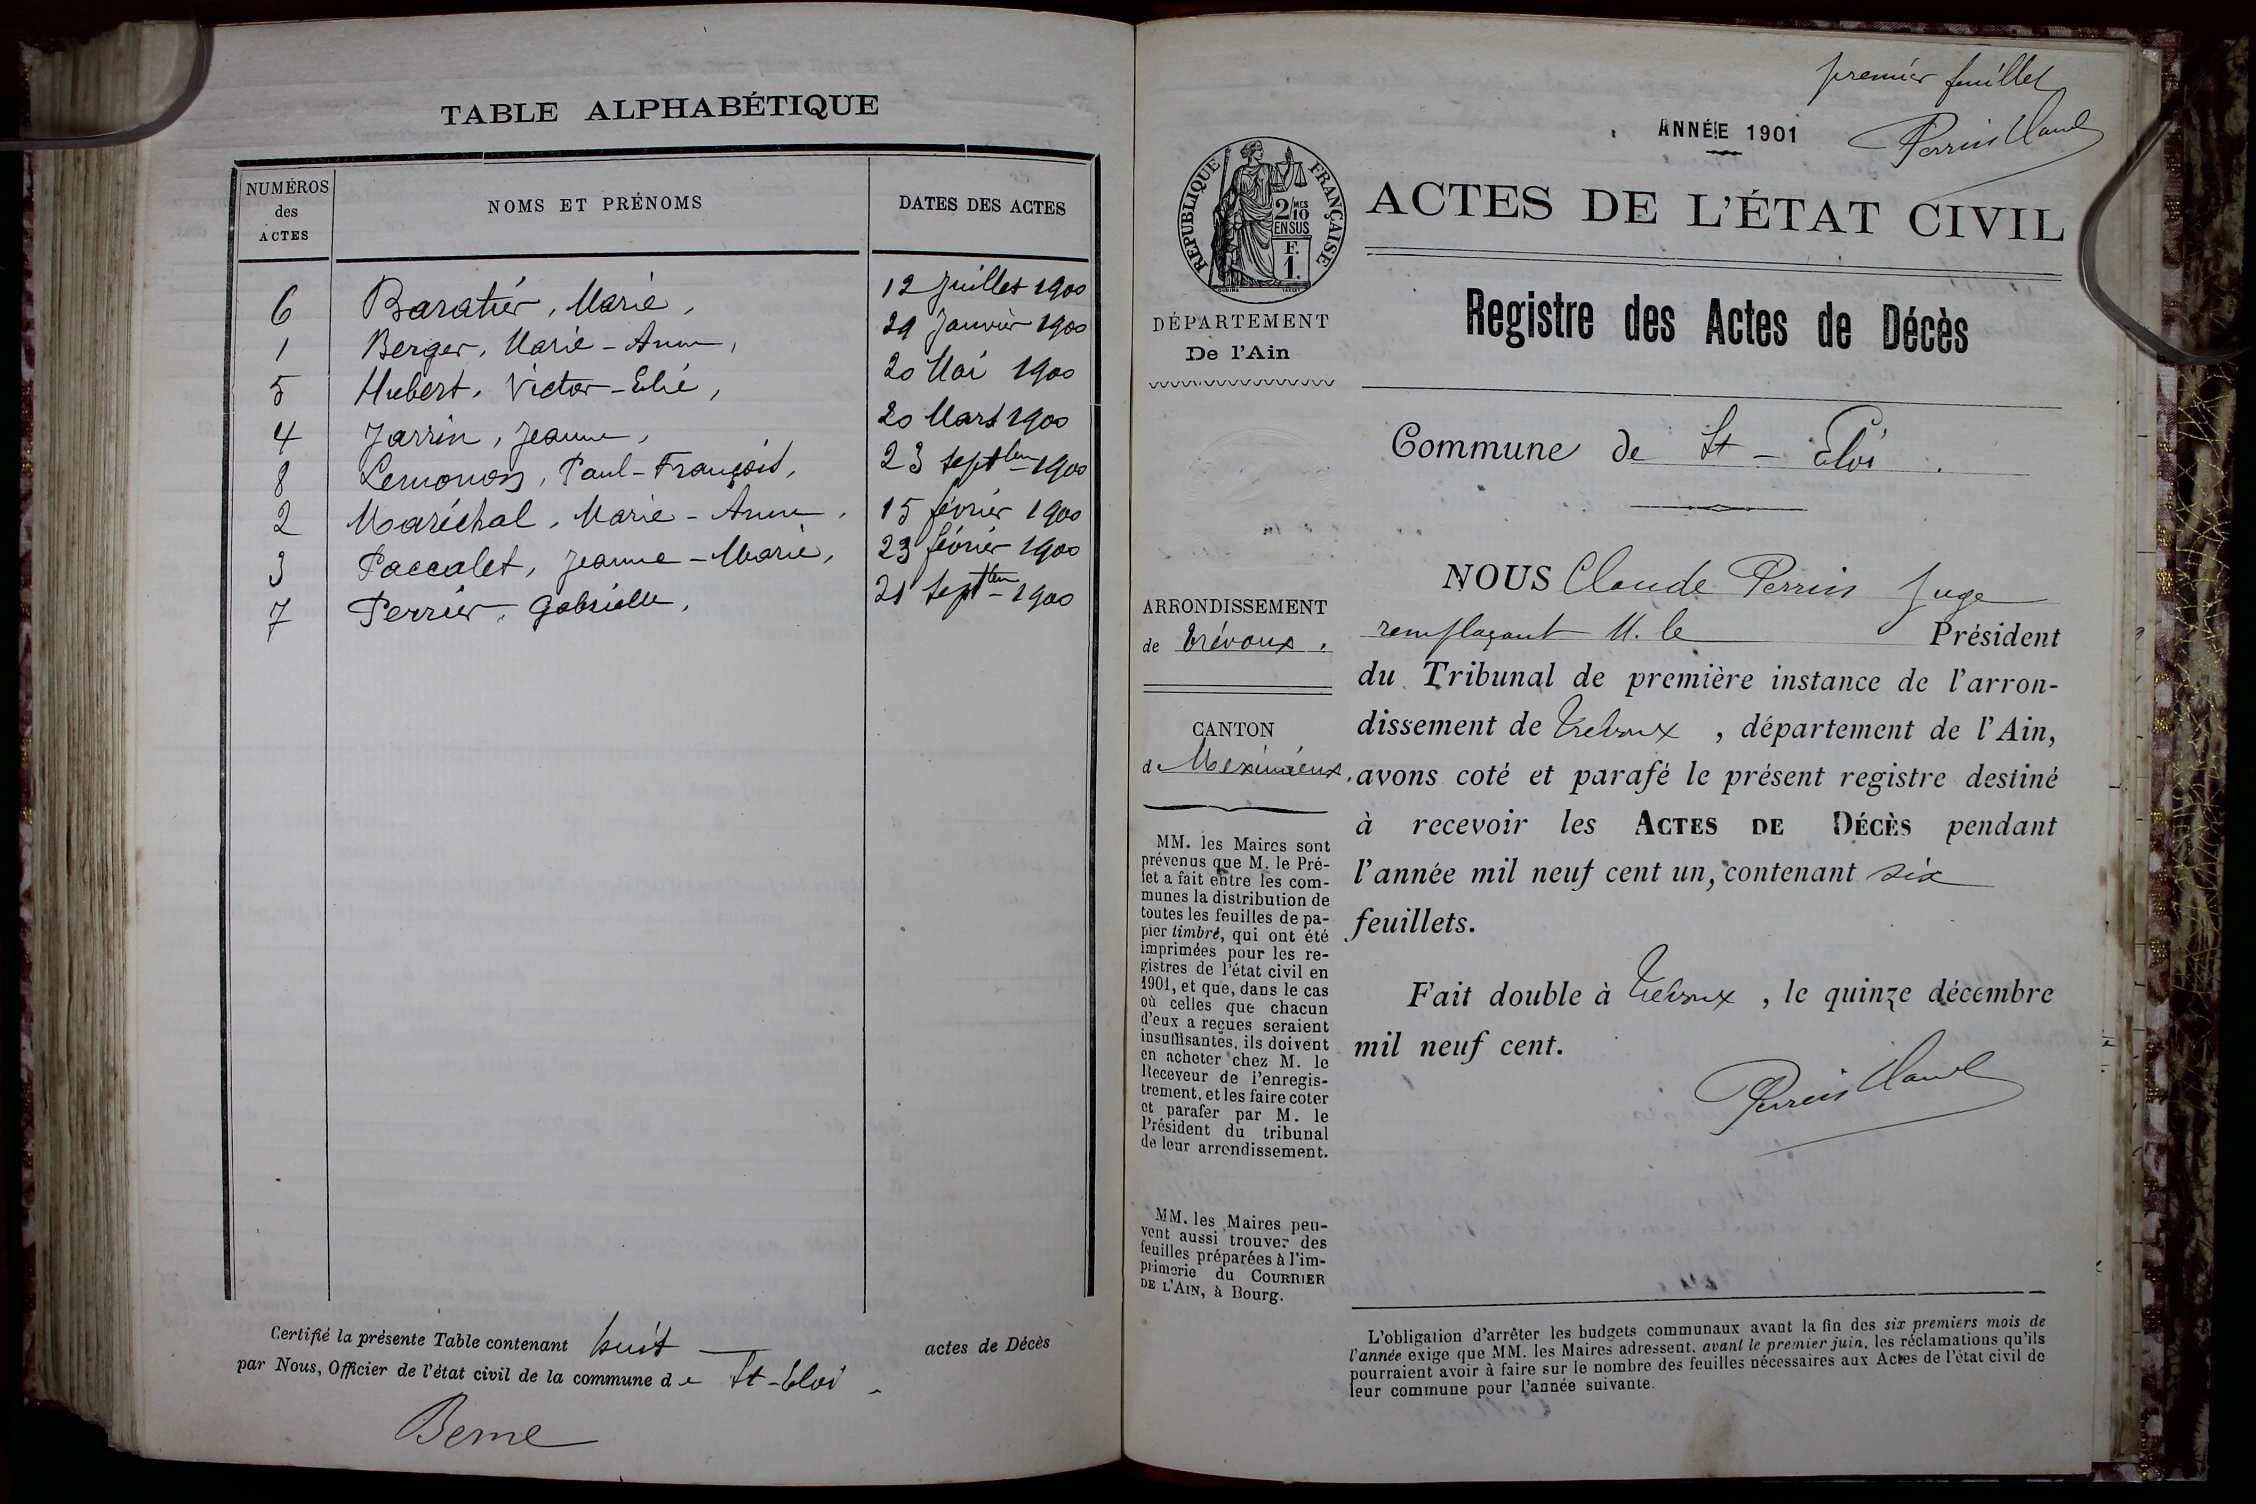 TABLE ALPHABÉTIQUE
NUMÉROS
des
ACTES
NOMS ET PRÉNOMS
DATES DES ACTES
6 Baratier, Marie, 12 Juillet 1900
1 Berger, Marie-Anne, 29 Janvier 1900
5 Hubert, Victor-Elié, 20 Mai 1900
4 Jarrin, Jeanne, 20 Mars 1900
8 Lemonon, Paul-François, 23 Septbre 1900
2 Maréchal, Marie-Anne, 15 février 1900
3 Paccalet, Jeanne-Marie, 23 février 1900
7 Perrier, Gabrielle, 21 Septbre 1900
Certifié la présente Table contenant huit actes de Décès
par Nous, Officier de l'état civil de la commune de St-Eloi
Berne
premier feuillet
Perrin Claude
ANNÉE 1901
RÉPUBLIQUE FRANÇAISE
2/10 MES
EN SUS
F.
1.
ACTES DE L'ÉTAT CIVIL
Registre des Actes de Décès
DÉPARTEMENT
De l'Ain
Commune de St-Eloi.
ARRONDISSEMENT
de Trévoux.
CANTON
de Meximieux.
MM. les Maires sont
prévenus que M. le Pré-
fet a fait entre les com-
munes la distribution de
toutes les feuilles de pa-
pier timbré, qui ont été
imprimées pour les re-
gistres de l'état civil en
1901, et que, dans le cas
où celles que chacun
d'eux a reçues seraient
insuffisantes, ils doivent
en acheter chez M. le
Receveur de l'enregis-
trement, et les faire coter
et parafer par M. le
Président du tribunal
de leur arrondissement.
MM. les Maires peu-
vent aussi trouver des
feuilles préparées à l'im-
primerie du COURRIER
DE L'AIN, à Bourg.
NOUS Claude Perrin Juge
remplaçant M. le Président
du Tribunal de première instance de l'arron-
dissement de Trévoux, département de l'Ain,
avons coté et parafé le présent registre destiné
à recevoir les ACTES DE DÉCÈS pendant
l'année mil neuf cent un, contenant six
feuillets.
Fait double à Trévoux, le quinze décembre
mil neuf cent.
Perrin Claude
L'obligation d'arrêter les budgets communaux avant la fin des six premiers mois de
l'année exige que MM. les Maires adressent, avant le premier juin, les réclamations qu'ils
pourraient avoir à faire sur le nombre des feuilles nécessaires aux Actes de l'état civil de
leur commune pour l'année suivante.